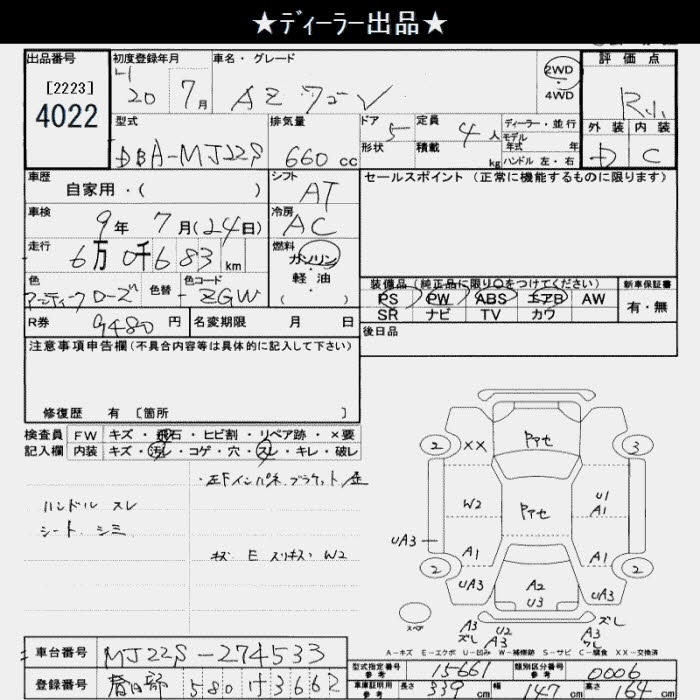 ★ディーラー出品★
出品番号
[2223]
4022
初度登録年月
20 7月
車名・グレード
AZ ワゴン
2WD
4WD
評価点
R小
外装 内装
D C
型式
DBA-MJ22S
排気量
660 cc
ドア 5
形状
定員 4 人
積載 kg
ディーラー・並行
モデル
年式 年
ハンドル 左・右
車歴
自家用・( )
シフト
AT
セールスポイント (正常に機能するものに限ります)
車検
9年 7月(24日)
冷房
AC
走行
6万 0千683 km
燃料
ガソリン
軽油
( )
色
アンティークローズ
色替
色コード
ZGW
装備品 (純正品に限り○をつけてください)
PS PW ABS エアB AW
SR ナビ TV カワ
新車保証書
有・無
R券 9480 円
名変期限 月 日
後日品
注意事項申告欄 (不具合内容等は具体的に記入して下さい)
修復歴 有 〔箇所 〕
検査員
記入欄
FW キズ・飛石・ヒビ割・リペア跡・×要
内装 キズ・汚レ・コゲ・穴・スレ・キレ・破レ
ハンドル スレ
シート シミ
キズ E スリキズ W2
2 XX 3
W2 U1
A1
UA3
A1 A1
2 2
UA3 A2 UA3
U3
スペア
A3 U2 A3 ズレ
ズレ
A-キズ E-エクボ U-凹み W-補修跡 S-サビ C-腐食 XX-交換済
車台番号 MJ22S-274533
登録番号 春日部 580 け3662
型式指定番号
参考
15661
類別区分番号
参考
0006
車庫証明用
参考
長さ 339 cm 幅 147 cm 高さ 64 cm